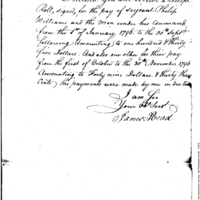 Roll, signed, for the pay of sergeant Philip
Williams and the men under his Command
from the 1st of January 1796 to the 30th Septr
following Amounting to one hundred & Thirty
five Dollars. And also one other for their pay
from the first of October to the 30th November 1796
Amounting to Forty nine Dollars & Thirty
Cents. The payments were made by me in
I am Sir
Your Obt Servt
James Read